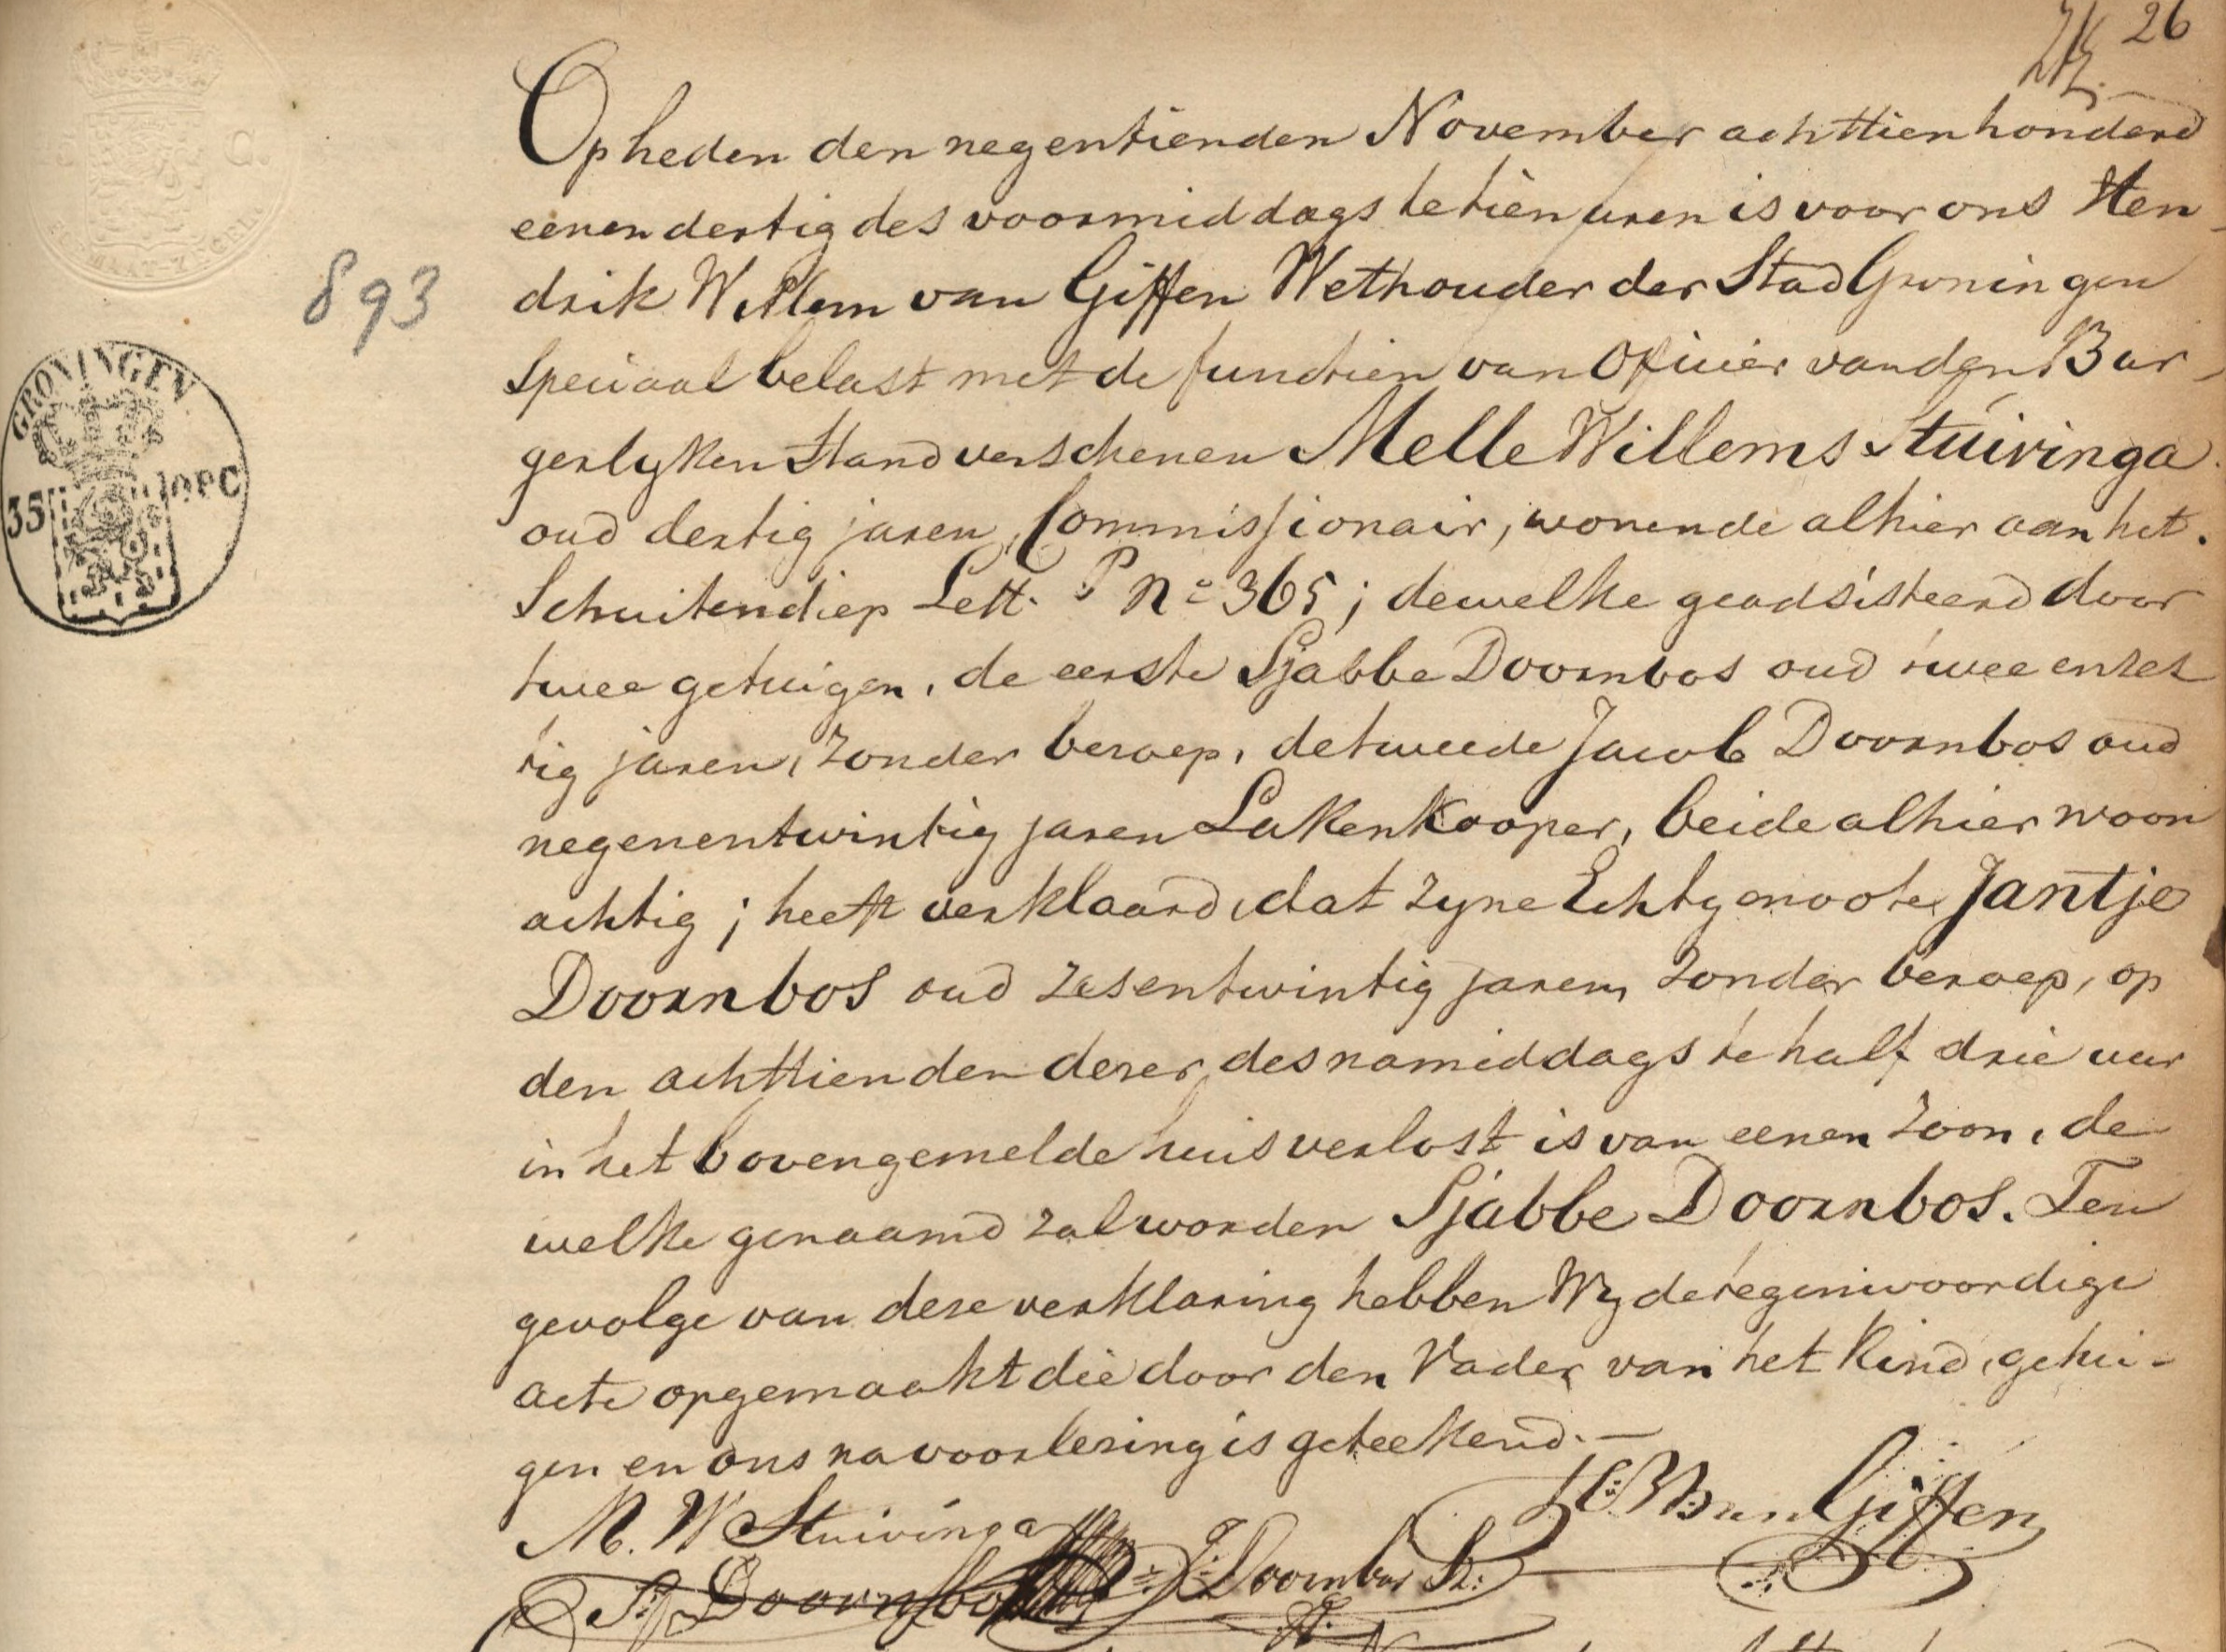 26
Op heden den negentienden November achttienhonderd
eenendertig des voormiddags te tien uren is voor ons Hen-
drik Willem van Giffen Wethouder der Stad Groningen
Speciaal belast met de functien van Officier van den Bur-
gerlyken Stand verschenen Melle Willems Stuivinga
oud dertig jaren, Commissionair, wonende alhier aan het
Schuitendiep Lett. P No 365; dewelke geadsisteerd door
twee getuigen, de eerste Sjabbe Doornbos oud twee enzes
tig jaren, zonder beroep, de tweede Jacob Doornbos oud
negenentwintig jaren Lakenkooper, beide alhier woon
achtig; heeft verklaard, dat zyne Echtgenoote Jantje
Doornbos oud zesentwintig jaren, zonder beroep, op
den achttienden dezer des namiddags te half drie uur
in het bovengemelde huis verlost is van eenen zoon, de
welke genaamd zal worden Sjabbe Doornbos. Ten
gevolge van deze verklaring hebben Wy de tegenwoordige
acte opgemaakt die door den Vader van het kind, getui-
gen en ons na voorlezing is geteekend.—
893
GRONINGEN
35 10PC
M. W Stuivinga
H: W: van Giffen
Sj Doornbos
J: Doornbos Sz: